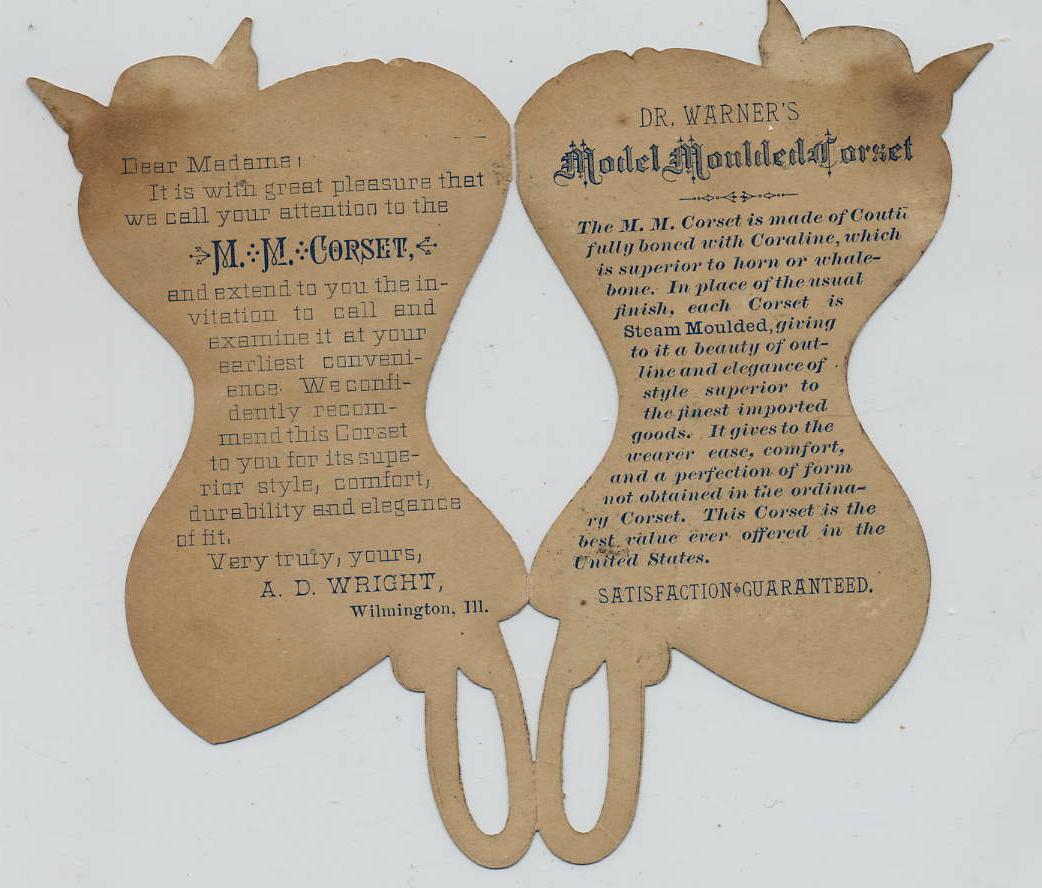 Dear Madame:
It is with great pleasure that
we call your attention to the
M. M. CORSET,
and extend to you the in-
vitation to call and
examine it at your
earliest conveni-
ence. We confi-
dently recom-
mend this Corset
to you for its supe-
rior style, comfort,
durability and elegance
of fit.
Very truly, yours,
A. D. WRIGHT,
Wilmington, Ill.
DR. WARNER'S
Model Moulded Corset
The M. M. Corset is made of
fully boned with Coraline, which
is superior to horn or whale-
bone. In place of the usual
finish, each Corset is
Steam Moulded, giving
to it a beauty of out-
line and elegance of
style superior to
the finest imported
goods. It gives to the
wearer ease, comfort,
and a perfection of form
not obtained in the ordina-
ry Corset. This Corset is the
best value ever offered in the
United States.
SATISFACTION GUARANTEED.